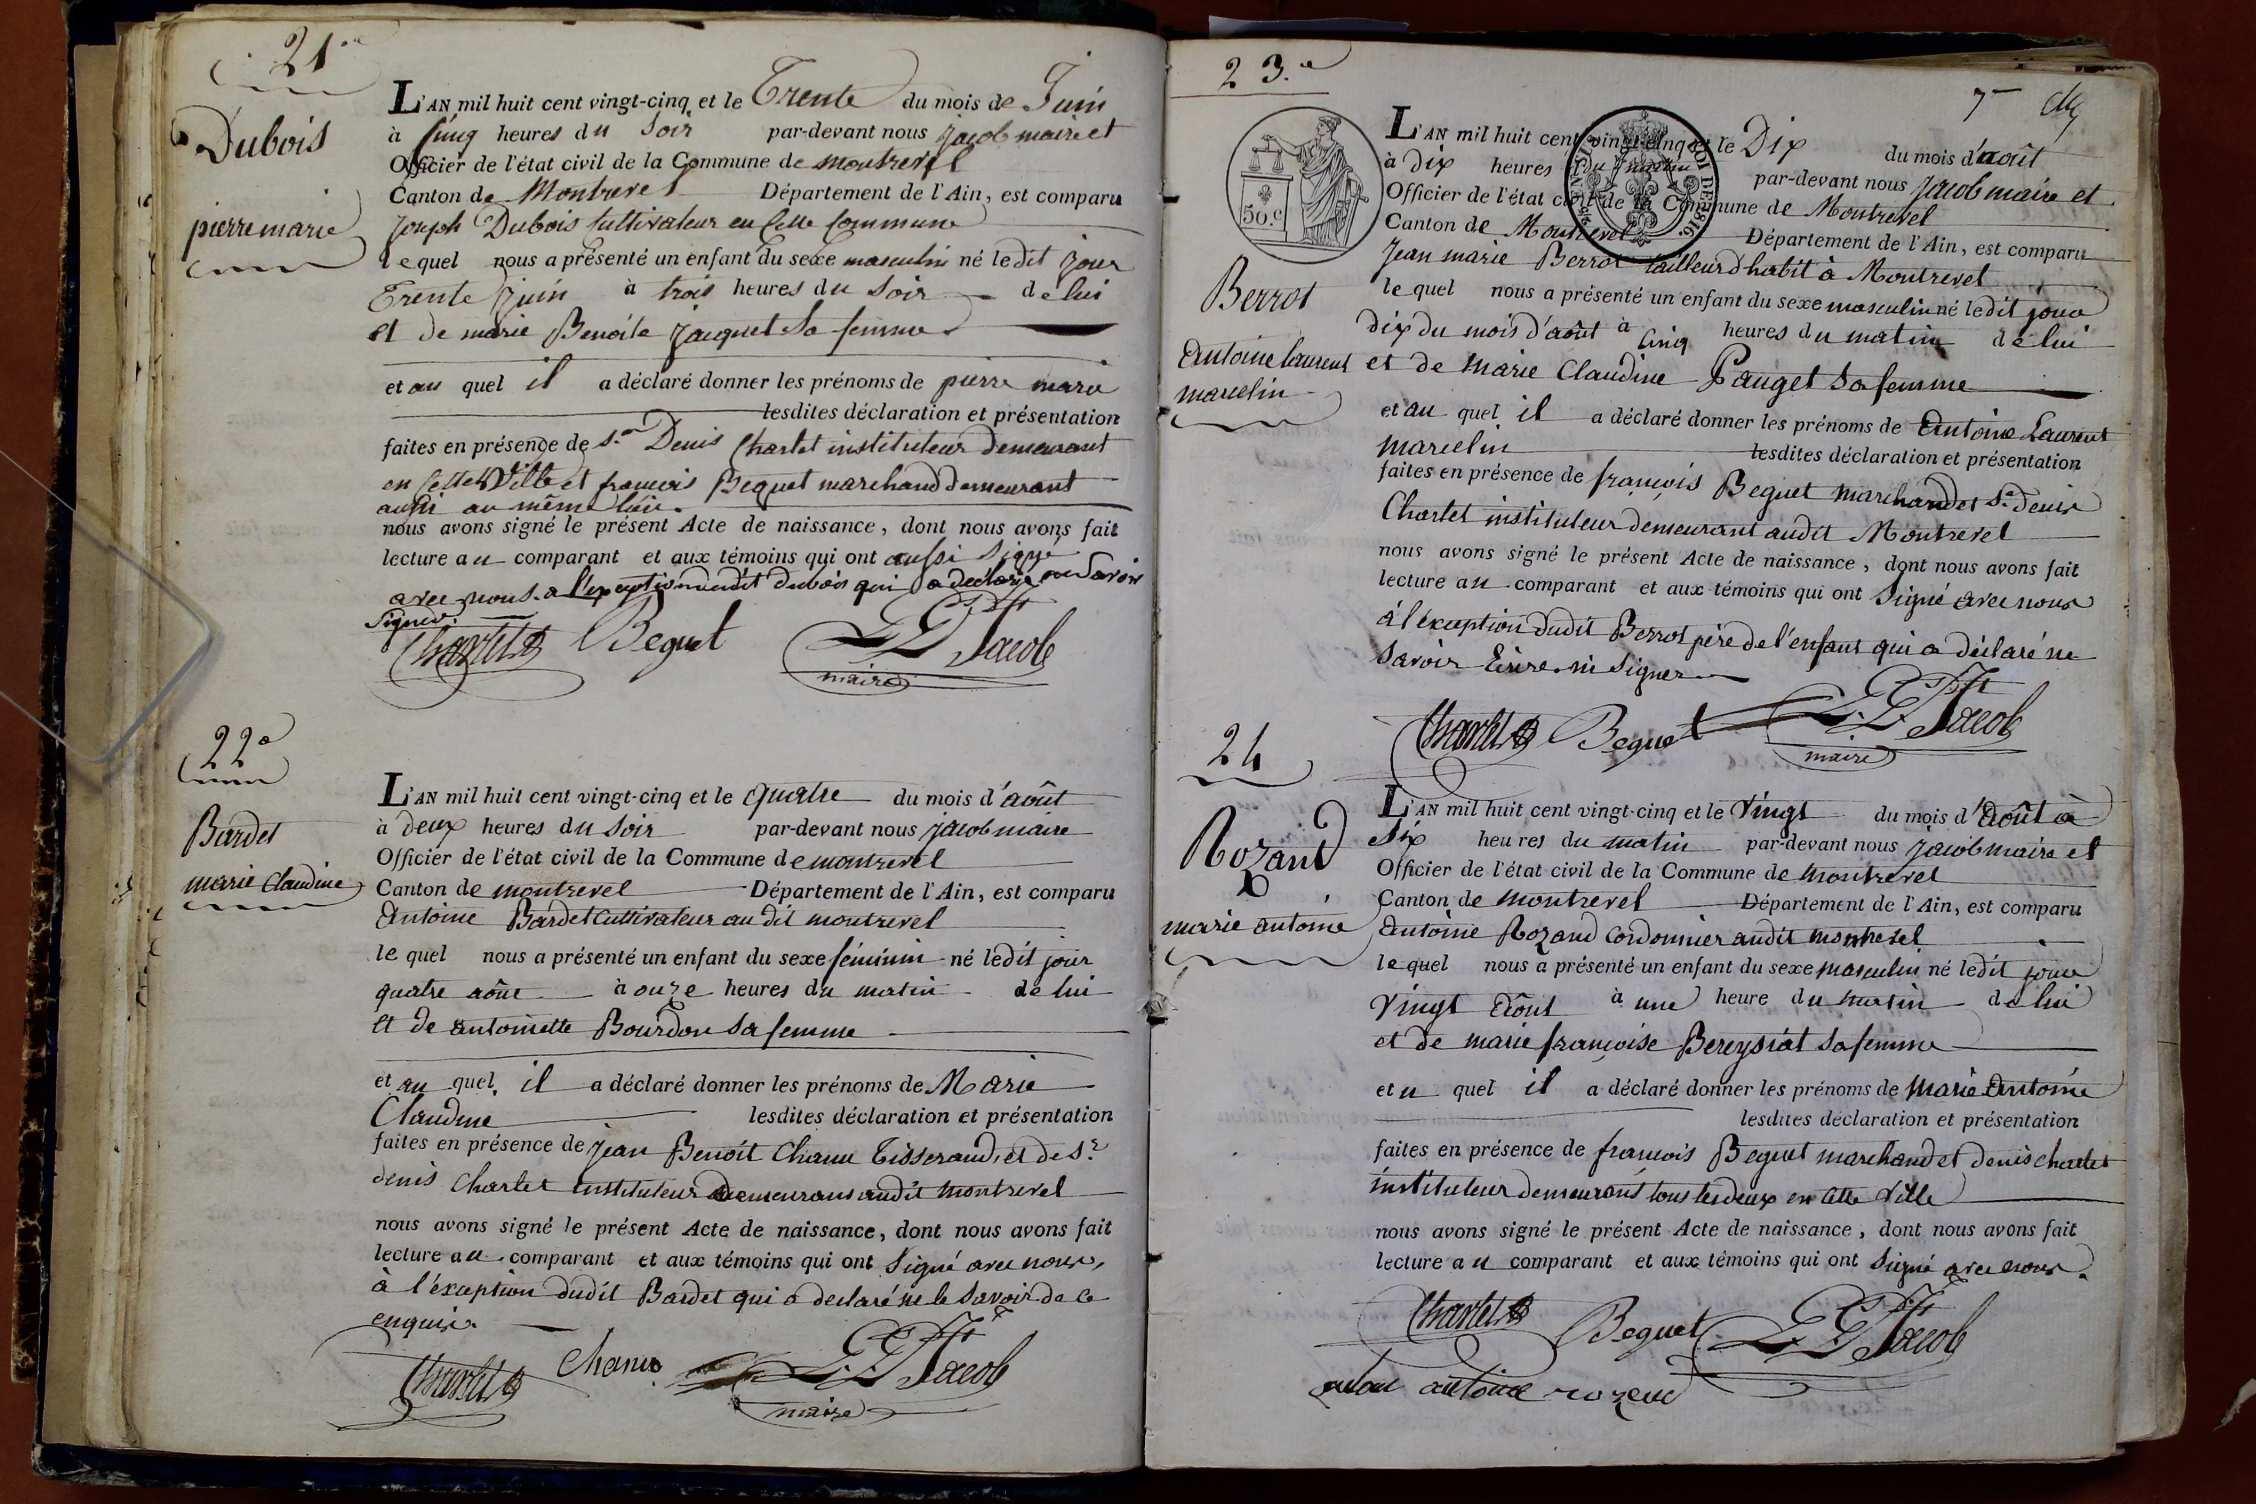 21.e
Dubois
pierre marie
L'AN mil huit cent vingt-cinq et le Trente du mois de Juin
à cinq heures du soir par-devant nous jacob maire et
Officier de l'état civil de la Commune de montrevel
Canton de Montrevel Département de l'Ain, est comparu
joseph Dubois cultivateur en cette commune
lequel nous a présenté un enfant du sexe masculin né ledit jour
Trente juin à trois heures du soir de lui
et de marie Benoite jacquet sa femme
et au quel il a déclaré donner les prénoms de pierre marie
lesdites déclaration et présentation
faites en présence de Sr Denis Charlet instituteur demeurant
en cette Ville et francois Beguet marchand demeurant
aussi au même lieu.
nous avons signé le présent Acte de naissance, dont nous avons fait
lecture au comparant et aux témoins qui ont aussi signé
avec nous a l'exception dudit dubois qui a declaré ne savoir
signer.
Charlet Beguet Jacob
maire
22e
Bardet
marie Claudine
L'AN mil huit cent vingt-cinq et le quatre du mois d'août
à deux heures du soir par-devant nous jacob maire
Officier de l'état civil de la Commune de montrevel
Canton de montrevel Département de l'Ain, est comparu
Antoine Bardet cultivateur au dit montrevel
le quel nous a présenté un enfant du sexe féminin né ledit jour
quatre août à onze heures du matin de lui
et de antoinette Bourdon sa femme
et au quel il a déclaré donner les prénoms de Marie
Claudine lesdites déclaration et présentation
faites en présence de jean Benoit Chanu Tisserand, et de Sr
denis Charlet instituteur demeurans audit montrevel
nous avons signé le présent Acte de naissance, dont nous avons fait
lecture au comparant et aux témoins qui ont signé avec nous,
à l'éxception dudit Bardet qui a declaré ne le savoir de ce
enquis.
Charlet Chanu Jacob
maire
23.e
7
Berrot
Antoine laurent
marcelin
50.c
ROI DE 1816.
L'AN mil huit cent vingt-cinq et le Dix du mois d'août
à dix heures du matin par-devant nous jacob maire et
Officier de l'état civil de la Commune de Montrevel
Canton de Montrevel Département de l'Ain, est comparu
Jean marie Berrot tailleur d'habit à Montrevel
le quel nous a présenté un enfant du sexe masculin né ledit jour
dix du mois d'août à cinq heures du matin de lui
et de marie Claudine Pauget sa femme
et au quel il a déclaré donner les prénoms de Antoine Laurent
marcelin lesdites déclaration et présentation
faites en présence de françois Beguet marchand et Sr Denis
Charlet instituteur demeurant audit Montrevel
nous avons signé le présent Acte de naissance, dont nous avons fait
lecture au comparant et aux témoins qui ont signé avec nous
à l'éxception dudit Berrot père de l'enfant qui a déclaré ne
savoir Ecrire ni signer
Charlet Beguet Jacob
maire
24
Rozand
marie antoine
L'AN mil huit cent vingt-cinq et le vingt du mois d'août à
six heures du matin par-devant nous jacob maire et
Officier de l'état civil de la Commune de montrevel
Canton de montrevel Département de l'Ain, est comparu
Antoine Rozand cordonnier audit montrevel
lequel nous a présenté un enfant du sexe masculin né ledit jour
vingt août à une heure du matin de lui
et de marie françoise Bereysiat sa femme
et u quel il a déclaré donner les prénoms de marie Antoine
lesdites déclaration et présentation
faites en présence de francois Beguet marchand et denis charlet
instituteur demeurant tous les deux en cette Ville
nous avons signé le présent Acte de naissance, dont nous avons fait
lecture au comparant et aux témoins qui ont signé avec nous.
Charlet Beguet Jacob
antoine rozand